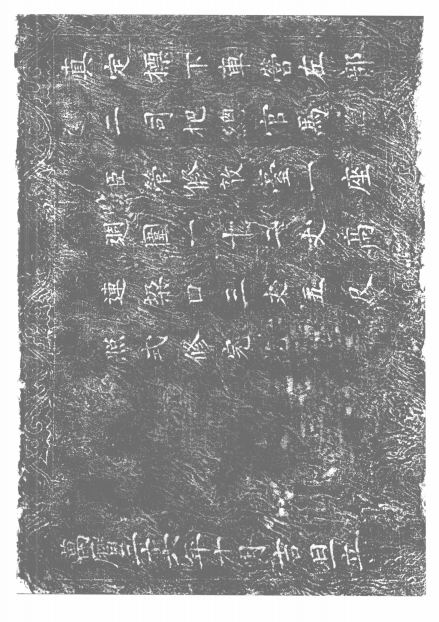 真定標下車營左部
二司把總官馬
臣管修敌臺一座
週圍一十二丈高
連垛口三丈五尺
照式修完
萬曆三十六年十月吉日立